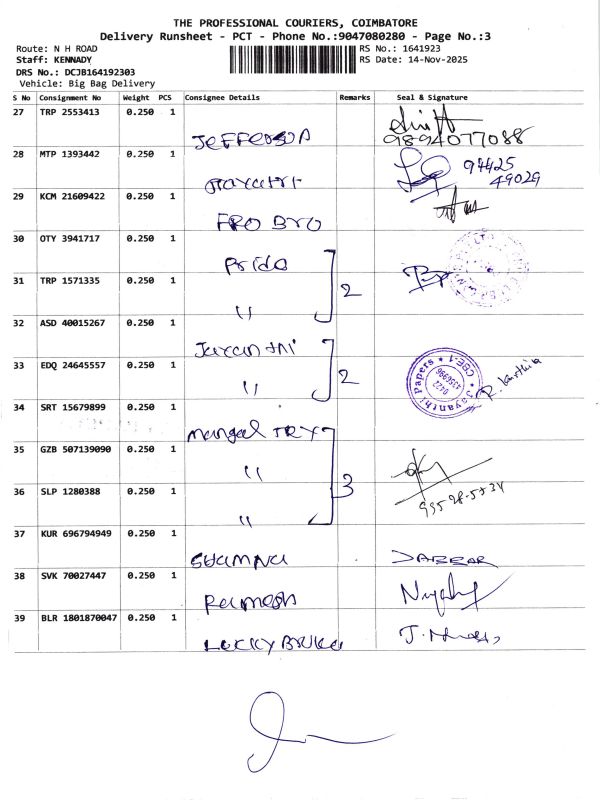 THE PROFESSIONAL COURIERS, COIMBATORE
Delivery Runsheet - PCT - Phone No.:9047080280 - Page No.:3
Route: N H ROAD RS No.: 1641923
Staff: KENNADY RS Date: 14-Nov-2025
DRS No.: DCJB164192303
Vehicle: Big Bag Delivery
S No Consignment No Weight PCS Consignee Details Remarks Seal & Signature
27 TRP 2553413 0.250 1
JEFFERSON 9894077088
28 MTP 1393442 0.250 1
94425
49029
29 KCM 21609422 0.250 1
FRO BYO
30 OTY 3941717 0.250 1
Pride
31 TRP 1571335 0.250 1 2
"
32 ASD 40015267 0.250 1
Jayanthi
33 EDQ 24645557 0.250 1 2
" Jayanthi Papers CBE-1 0422 R. Karthik
34 SRT 15679899 0.250 1
mangal TRY
35 GZB 507139090 0.250 1
"
36 SLP 1280388 0.250 1 3
"
37 KUR 696794949 0.250 1
JABBAR
38 SVK 70027447 0.250 1
Ramesh
39 BLR 1801870047 0.250 1
LUCKY